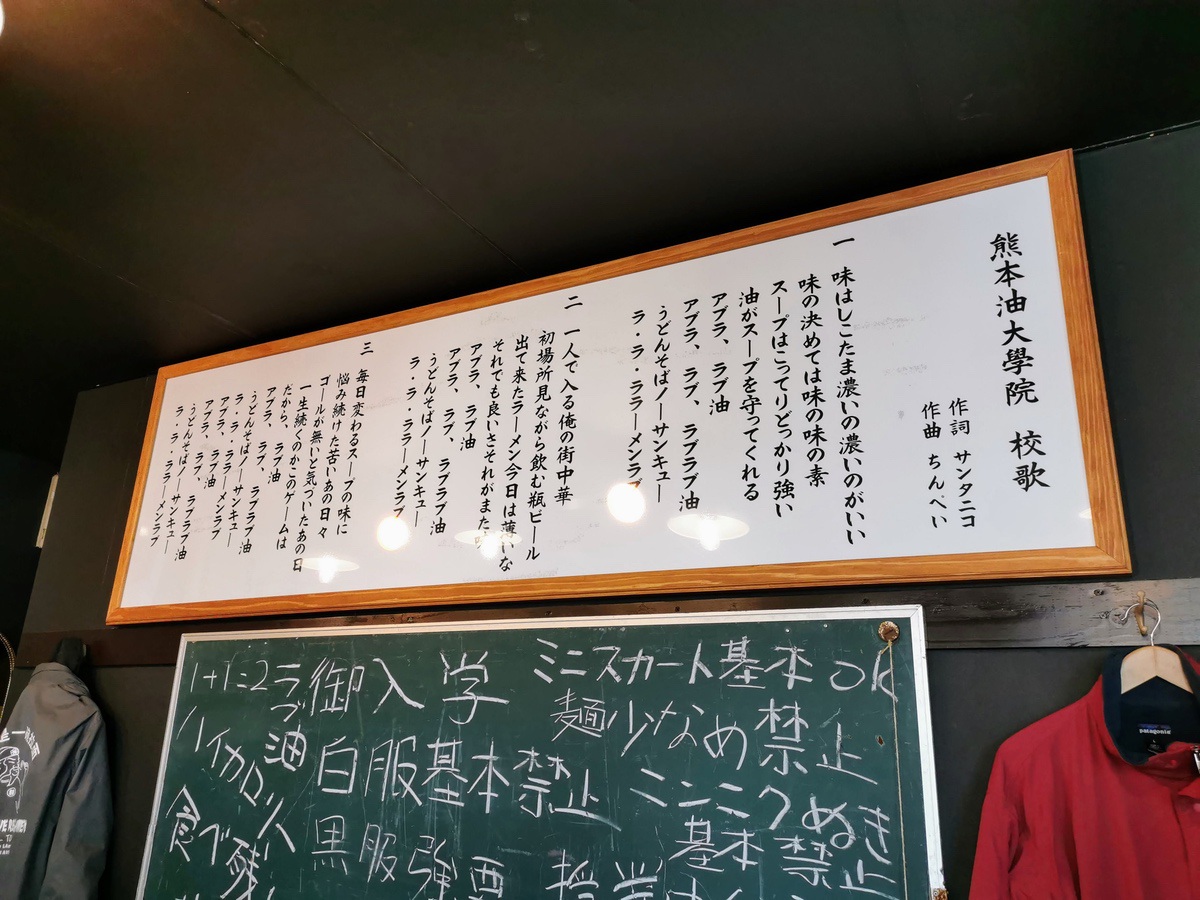 熊本油大學院 校歌
作詞 サンタニコ
作曲 ちんぺい
一 味はしこたま濃いの濃いのがいい
味の決めては味の味の素
スープはこってりどっかり強い
油がスープを守ってくれる
アブラ、ラブ油
アブラ、ラブ、ラブラブ油
うどんそばノーサンキュー
ラ・ラ・ララーメンラブ
二 一人で入る俺の街中華
初場所見ながら飲む瓶ビール
出て来たラーメン今日は薄いな
それでも良いさそれがまた
アブラ、ラブ油
アブラ、ラブ、ラブラブ油
うどんそばノーサンキュー
ラ・ラ・ララーメンラブ
三 毎日変わるスープの味に
悩み続けた苦いあの日々
ゴールが無いと気づいたあの日
一生続くのかこのゲームは
だから、ラブ油
アブラ、ラブ、ラブラブ油
うどんそばノーサンキュー
ラ・ラ・ララーメンラブ
アブラ、ラブ油
アブラ、ラブ、ラブラブ油
うどんそばノーサンキュー
ラ・ラ・ララーメンラブ
1+1=2ラブ油
ハイカロリー
食べ残
御入学
白服基本禁止
黒服強要
ミニスカート基本OK
麺少なめ禁止
ニンニクぬき
基本禁止
patagonia